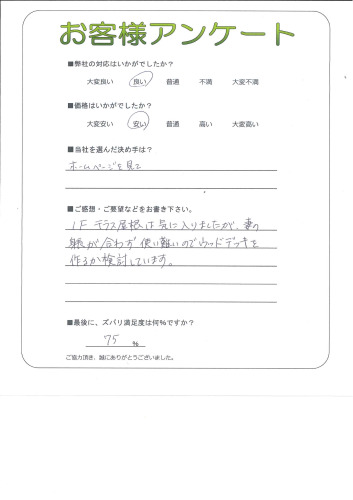 お客様アンケート
■弊社の対応はいかがでしたか？
大変良い 良い 普通 不満 大変不満
■価格はいかがでしたか？
大変安い 安い 普通 高い 大変高い
■当社を選んだ決め手は？
ホームページを見て
■ご感想・ご要望などをお書き下さい。
1F テラス屋根は気に入りましたが、妻の
が合わず使い難いのでウッドデッキを
作るか検討しています。
■最後に、ズバリ満足度は何%ですか？
75 %
ご協力頂き、誠にありがとうございました。